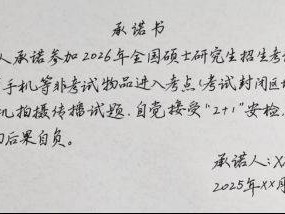 承诺书
人承诺参加2026年全国硕士研究生招生考
手机等非考试物品进入考点(考试封闭区
机拍摄传播试题,自觉接受“2+1”安检,
后果自负。
承诺人:X
2025年XX月